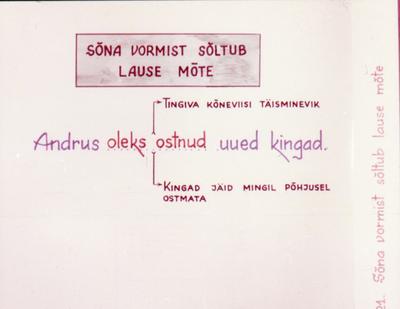 SÕNA VORMIST SÕLTUB
LAUSE MÕTE
TINGIVA KÕNEVIISI TÄISMINEVIK
Andrus oleks ostnud uued kingad.
KINGAD JÄID MINGIL PÕHJUSEL
OSTMATA
21. Sõna vormist sõltub lause mõte